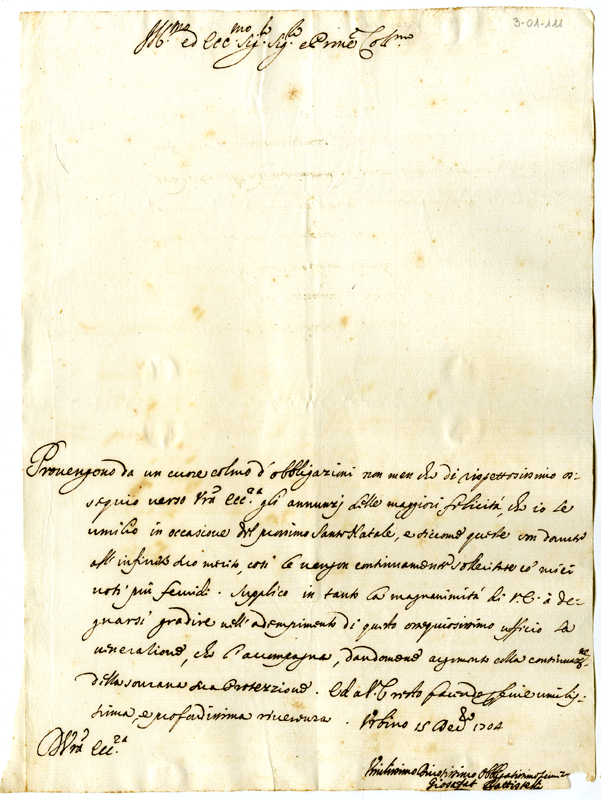 3-01-111
Ill.mo ed Ecc.mo Sig.r Sig.r e Prone Col.mo
Provengono da un cuore colmo d'obbligazini non men che di rispettosissimo os-
sequio verso Vra Ecc.za gli annunzj delle maggiori felicità, che io le
umilio in occasione del prossimo Santo Natale, e siccome queste son dovute
all'infinito suo merito, così le vengon continuamente sollecitate co' miei
voti più fervidi. Supplico in tanto la magnanimità di V.E. à de-
gnarsi gradire nell'adempimento di questo ossequiosissimo ufficio la
veneratione, che l'accompagna, dandomene argomento colla continuaz.ne
della sovrana sua Protezzione. Ed a V.E. resto facendo umilis-
sima, e profondissima riverenza. Urbino 15 Dec.e 1704
D Vra Ecc.za
Umilissimo Obbligatissimo
Giosafat Battistelli